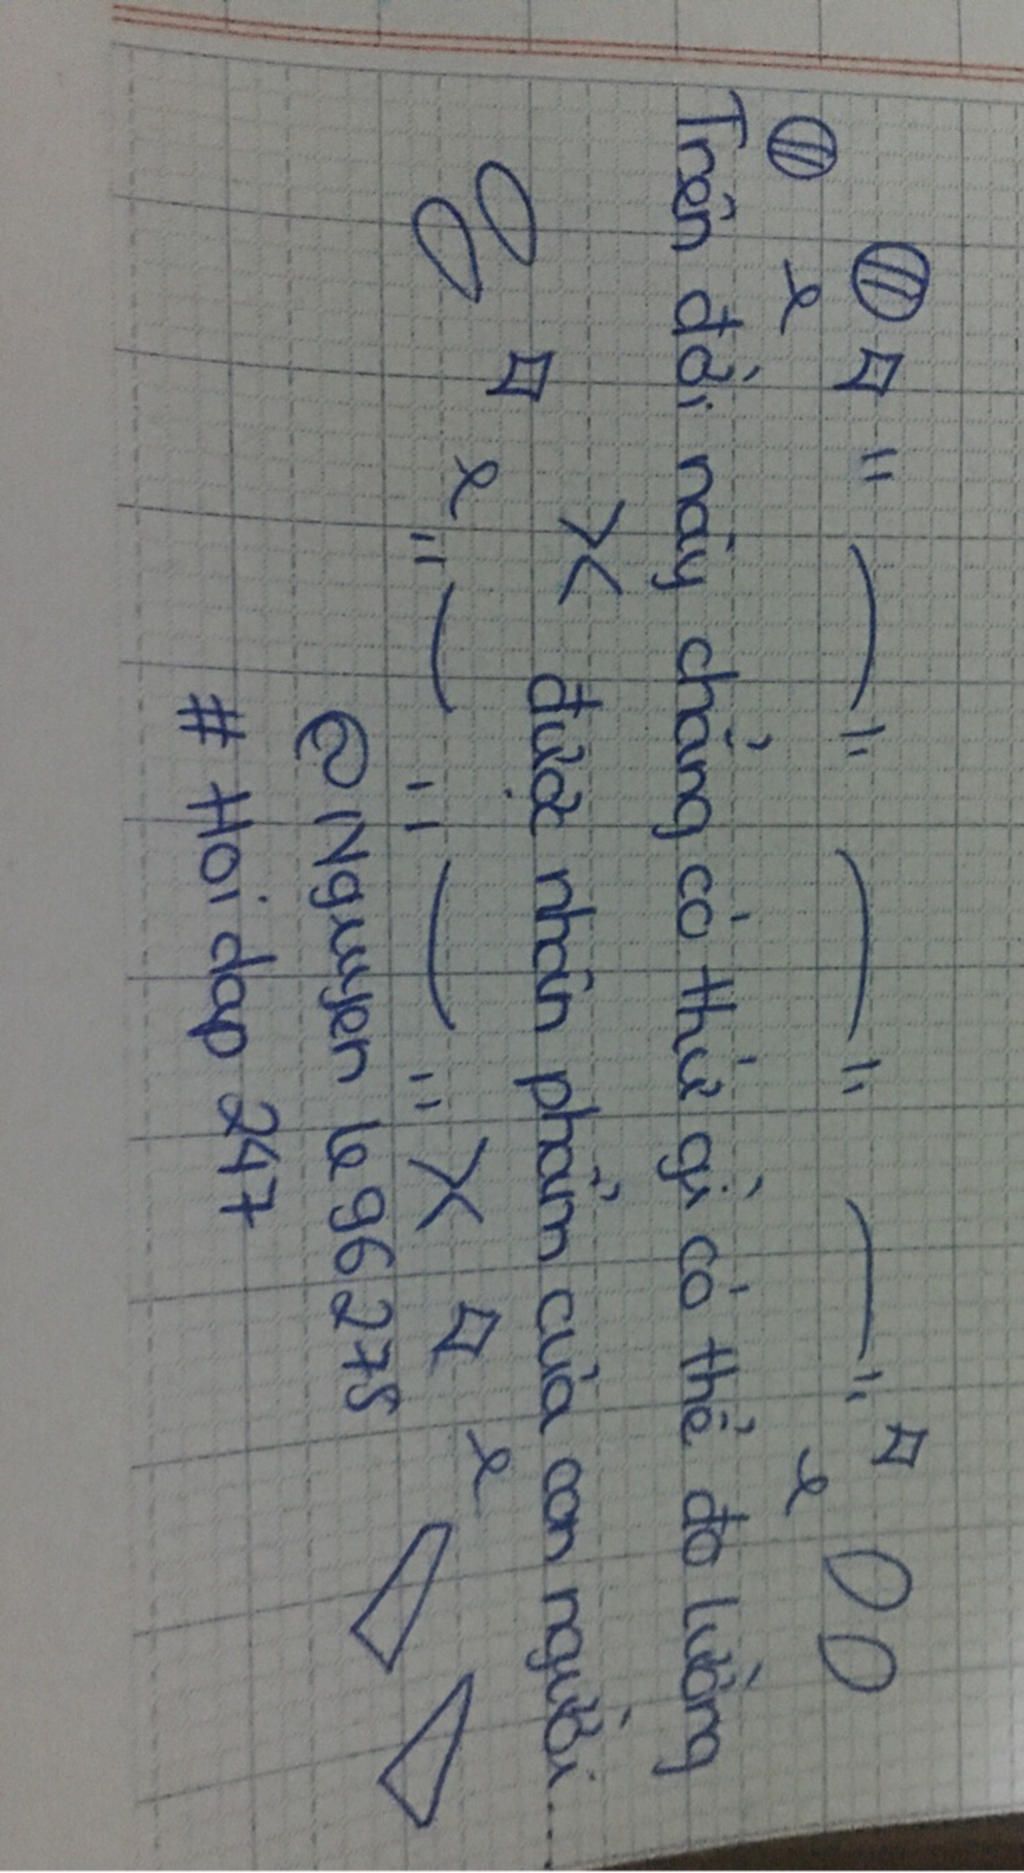 Trên đời này chẳng có thứ gì có thể đo lường
được nhân phẩm của con người...
@Nguyen le96278
# Hoi dap 247